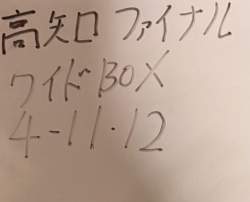 高知口ファイナル
ワイドBOX
4-11・12